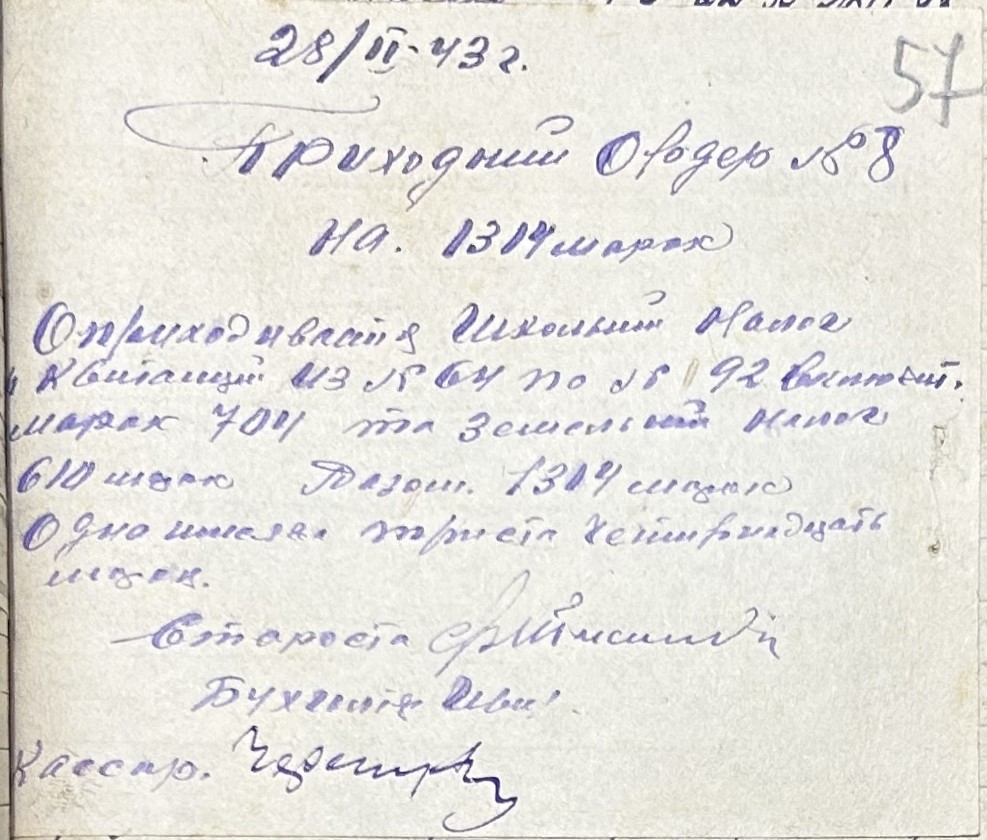 28/II-43 г.
57
Приходний Ордер № 8
на. 1314 марок
Оприходивается Школьний Налог
Квитанций из № 64 по № 92 включит.
марок 704 та Земельний налог
610 марок Разом. 1314 марок
Одна тисяча триста Четирнадцать
марок.
Староста
Бухгалтер
Кассир.